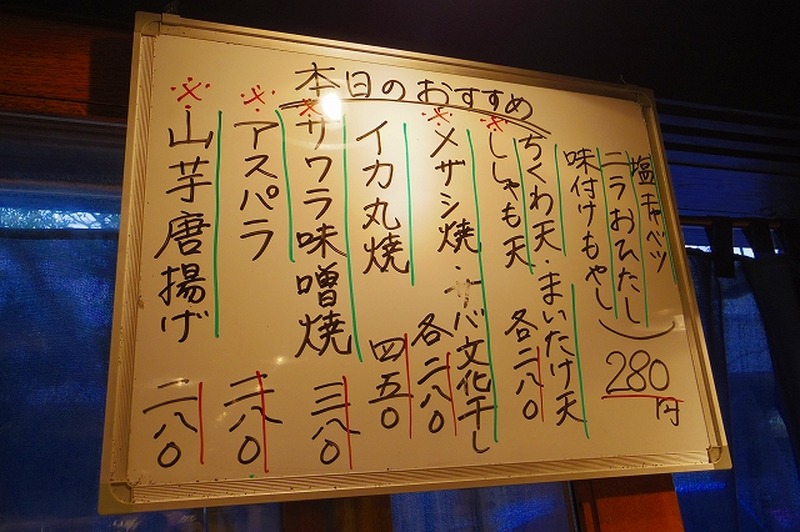 本日のおすすめ
塩キャベツ
ニラおひたし
味付けもやし
280円
ちくわ天・まいたけ天
ししゃも天 各二八〇
メザシ焼・サバ文化干し
各二八〇
イカ丸焼 四五〇
※サワラ味噌焼 三八〇
※アスパラ 二八〇
※山芋唐揚げ 二八〇